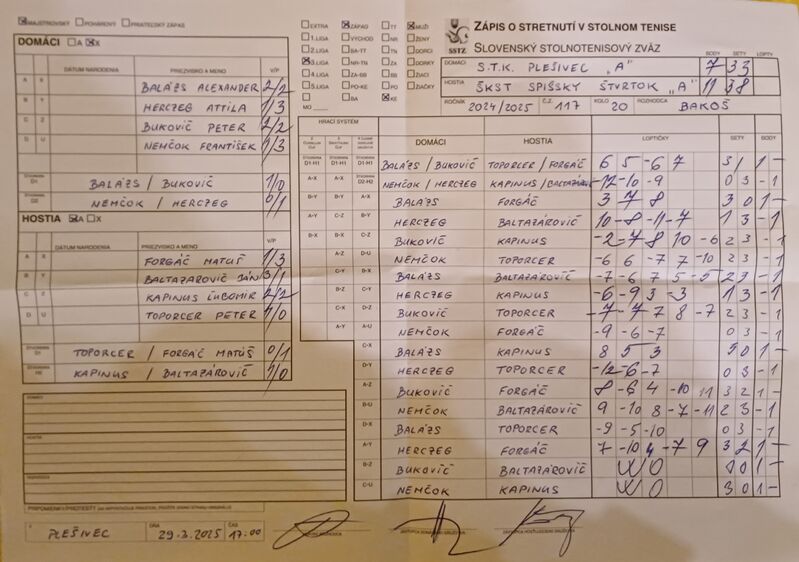 MAJSTROVSKÝ POHÁROVÝ PRIATEĽSKÝ ZÁPAS
DOMÁCI A X
DÁTUM NARODENIA PRIEZVISKO A MENO V/P
A X BALÁZS ALEXANDER 2/2
B Y HERCZEG ATTILA 1/3
C Z BUKOVIČ PETER 2/2
D U NEMČOK FRANTIŠEK 1/3
ŠTVORHRA D1 BALÁZS / BUKOVIČ 1/0
ŠTVORHRA D2 NEMČOK / HERCZEG 0/1
HOSTIA A X
DÁTUM NARODENIA PRIEZVISKO A MENO V/P
A X FORGÁČ MATÚŠ 1/3
B Y BALTAZÁROVIČ JÁN 3/1
C Z KAPINUS ĽUBOMÍR 2/2
D U TOPORCER PETER
ŠTVORHRA TOPORCER / FORGÁČ MATÚŠ 0/1
ŠTVORHRA KAPINUS / BALTAZÁROVIČ 1/0
DOMÁCI
HOSTIA
PLEŠIVEC DŇA 29.3.2025 ČAS 17:00
EXTRA ZÁPAD TT MUŽI
1.LIGA VÝCHOD NR ŽENY
2.LIGA BA-TT TN DORCI
3.LIGA NR-TN ZA DORKY
4.LIGA ZA-BB BB ŽIACI
5.LIGA PO-KE PO ŽIAČKY
MO BA KE
SSTZ
ZÁPIS O STRETNUTÍ V STOLNOM TENISE
SLOVENSKÝ STOLNOTENISOVÝ ZVÄZ
BODY SETY LOPTY
DOMÁCI S.T.K. PLEŠIVEC „A" 7 33
HOSTIA ŠKST SPIŠSKÝ ŠTVRTOK „A" 11 38
ROČNÍK 2024/2025 Č.Z. 117 KOLO 20 ROZHODCA BAKOŠ
HRACÍ SYSTÉM
DOMÁCI HOSTIA LOPTIČKY SETY BODY
BALÁZS / BUKOVIČ TOPORCER / FORGÁČ 6 5 -6 7 3 1 1 -
NEMČOK / HERCZEG KAPINUS / BALTAZÁROVIČ -12 -10 -9 0 3 - 1
A-X BALÁZS FORGÁČ 3 7 8 3 0 1 -
HERCZEG BALTAZÁROVIČ 10 -8 -11 -7 1 3 - 1
BUKOVIČ KAPINUS -2 -7 8 10 -6 2 3 - 1
D-U NEMČOK TOPORCER -6 6 -7 7 -10 2 3 - 1
BALÁZS BALTAZÁROVIČ -7 -6 7 5 -5 2 3 - 1
HERCZEG KAPINUS -6 -9 3 -3 1 3 - 1
BUKOVIČ TOPORCER -7 -7 7 8 -7 2 3 - 1
A-U NEMČOK FORGÁČ -9 -6 -7 0 3 - 1
C-X BALÁZS KAPINUS 8 5 3 3 0 1 -
D-Y HERCZEG TOPORCER -12 -6 -7 0 3 - 1
A-Z BUKOVIČ FORGÁČ 8 -6 4 -10 11 3 2 1 -
B-U NEMČOK BALTAZÁROVIČ 9 -10 8 -7 -11 2 3 - 1
D-X BALÁZS TOPORCER -9 -5 -10 0 3 - 1
A-Y HERCZEG FORGÁČ 7 -10 4 -7 9 3 2 1 -
B-Z BUKOVIČ BALTAZÁROVIČ WO 3 0 1 -
C-U NEMČOK KAPINUS WO 3 0 1 -